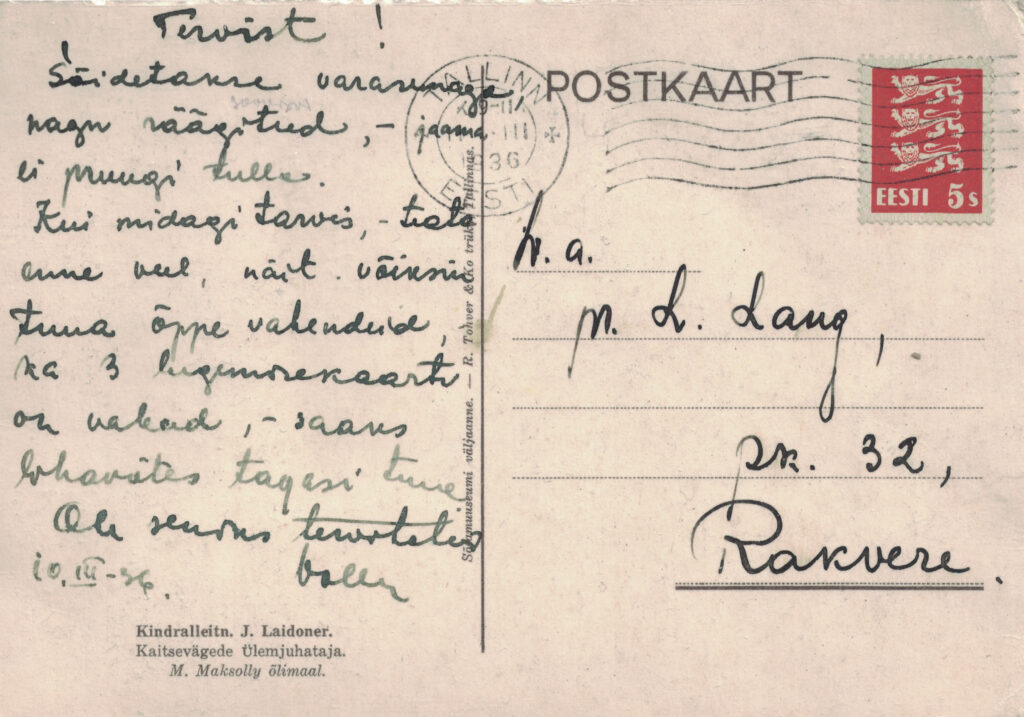 Tervist !
Sõidetakse varasemaga
nagu räägitud, - jaama
ei pruugi tulla.
Kui midagi tarvis, - teata
enne veel, näit. võiksin
tuua õppevahendeid, -
ka 3 lugemisekaarti
on vabad, - saaks
lihavõtes tagasi tuua
Ole seniks tervitatud
10. III - 36.
POSTKAART
TALLINN
EESTI
EESTI 5s
p. L. Lang,
pk. 32,
Rakvere.
Sõjamuuseumi väljaanne. — R. Tohver & Ko trükk, Tallinnas.
Kindralleitn. J. Laidoner.
Kaitsevägede Ülemjuhataja.
M. Maksolly õlimaal.